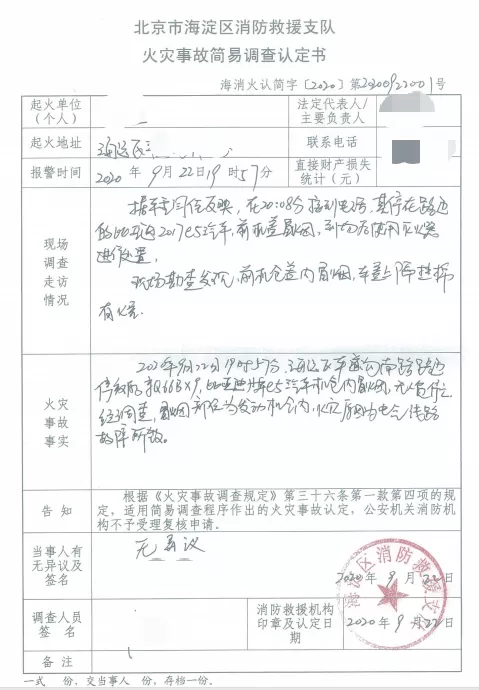 北京市海淀区消防救援支队
火灾事故简易调查认定书
海消火认简字〔2020〕第20200922001号
起火单位（个人）
法定代表人/主要负责人
起火地址
海淀区
联系电话
报警时间
2020年9月22日19时57分
直接财产损失统计（元）
现场调查走访情况
在20:08分接到电话，其停在路边
的比亚迪2017e5汽车，前机盖冒烟，到场后使用灭火器
进行处置。
现场勘查发现，前机仓盖内冒烟，车上
有火
火灾事故事实
2020年9月22日19时57分，海淀区
停放的京Q66BX9，比亚迪牌e5汽车机仓内冒烟，无人员伤亡
经调查，冒烟部位为发动机仓内，火灾原因为电气线路
故障所致。
告知
根据《火灾事故调查规定》第三十六条第一款第四项的规
定，适用简易调查程序作出的火灾事故认定，公安机关消防机
构不予受理复核申请。
当事人有无异议及签名
无异议
2020年9月22日
调查人员签名
消防救援机构印章及认定日期
2020年9月22日
海淀区消防救援支队
备注
一式 份，交当事人 份，存档一份。